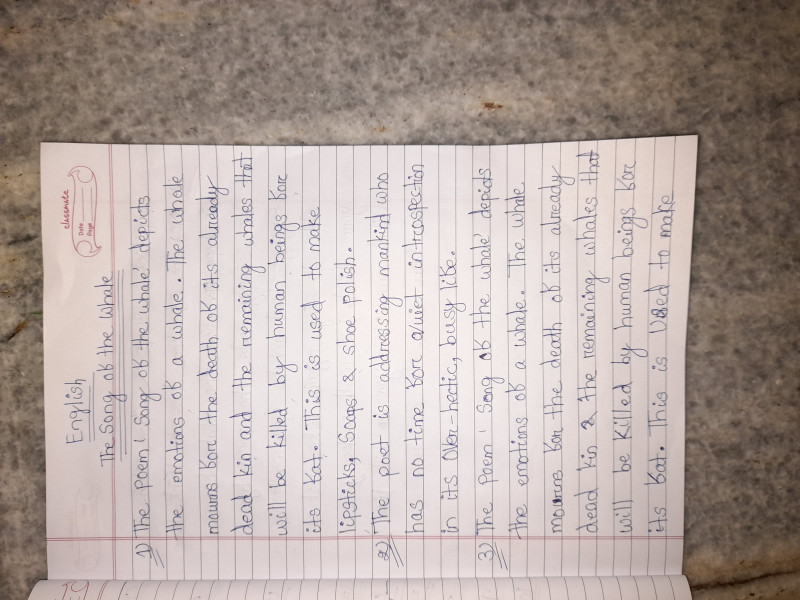 classmate
Date
Page
English
The Song of the whale
1) The Poem 'Song of the whale' depicts
the emotions of a whale. The whale
mourns for the death of its already
dead kin and the remaining whales that
will be killed by human beings for
its fat. This is used to make
lipsticks, Soaps & shoe polish.
2) The poet is addressing mankind who
has no time for quiet introspection
in its Over-hectic, busy life.
3) The Poem 'Song of the whale' depicts
the emotions of a whale. The whale
mourns for the death of its already
dead kin & the remaining whales that
will be killed by human beings for
its fat. This is Used to make